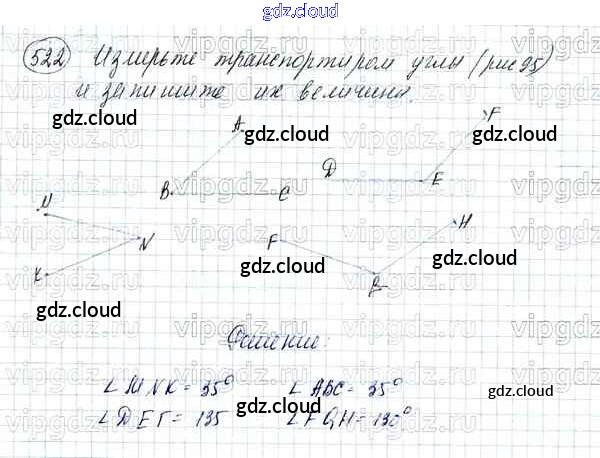 gdz.cloud
522 Измерьте транспортиром углы (рис 95)
и запишите их величины.
gdz.cloud
A
gdz.cloud
F
gdz.cloud
B
C
D
E
M
N
K
F
H
gdz.cloud
gdz.cloud
gdz.cloud
Решение:
∠MNK = 35° ∠ABC = 35°
gdz.cloud
gdz.cloud
∠DEF = 135 ∠FQH = 130°
gdz.cloud
vipgdz.ru